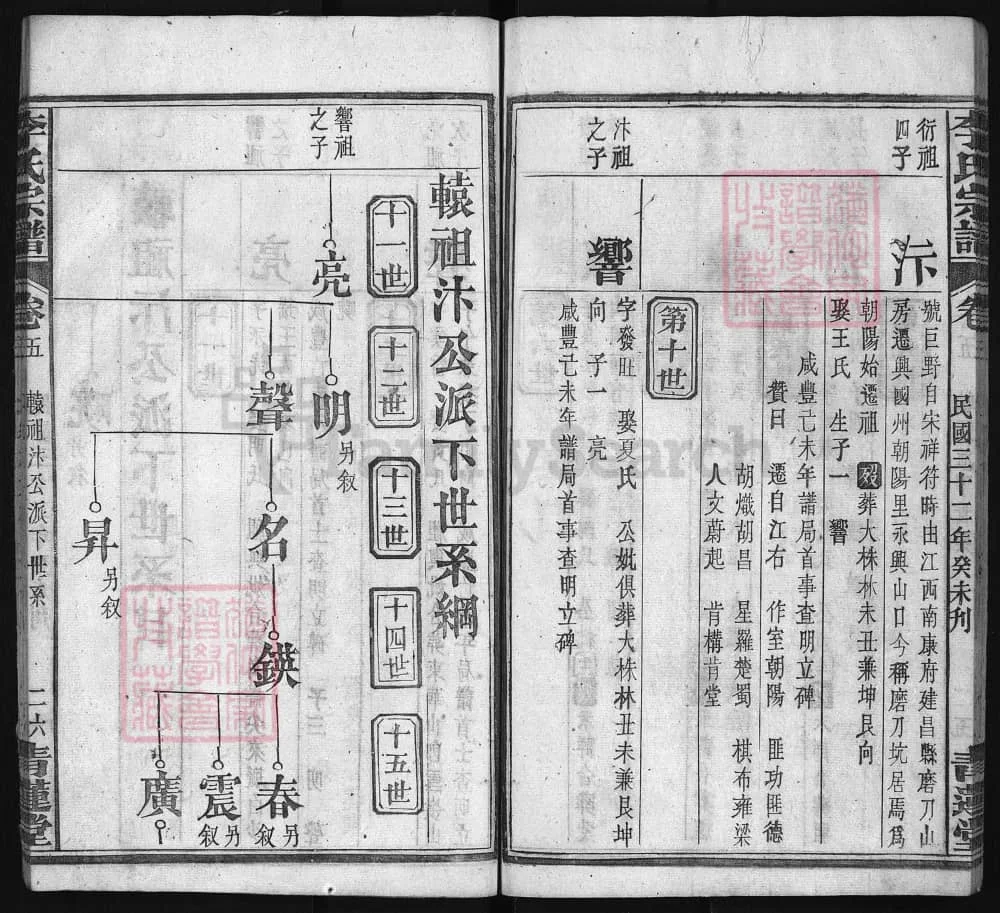 李氏宗譜
卷五
民國三十二年癸未刋
青蓮堂
衍祖
四子
汴
號巨野自宋祥符時由江西南康府建昌縣磨刀山
房遷興國州朝陽里永興山口今稱磨刀坑居焉爲
朝陽始遷祖 歿葬大株林未丑兼坤艮向
娶王氏 生子一 響
咸豐己未年譜局首事查明立碑
贊曰 遷自江右 作室朝陽 匪功匪德
胡熾胡昌 星羅楚蜀 棋布雍梁
人文蔚起 肯構肯堂
第十世
汴祖
之子
響
字發旺 娶夏氏 公妣俱葬大株林丑未兼艮坤
向 子一 亮
咸豐己未年譜局首事查明立碑
轅祖汴公派下世系綱
十一世
十二世
十三世
十四世
十五世
響祖
之子
亮
明 另叙
聲
名
昇 另叙
鍈
春 另叙
震 另叙
廣
李氏宗譜
卷五
轅祖汴公派下世系
二六
青蓮堂
FamilySearch